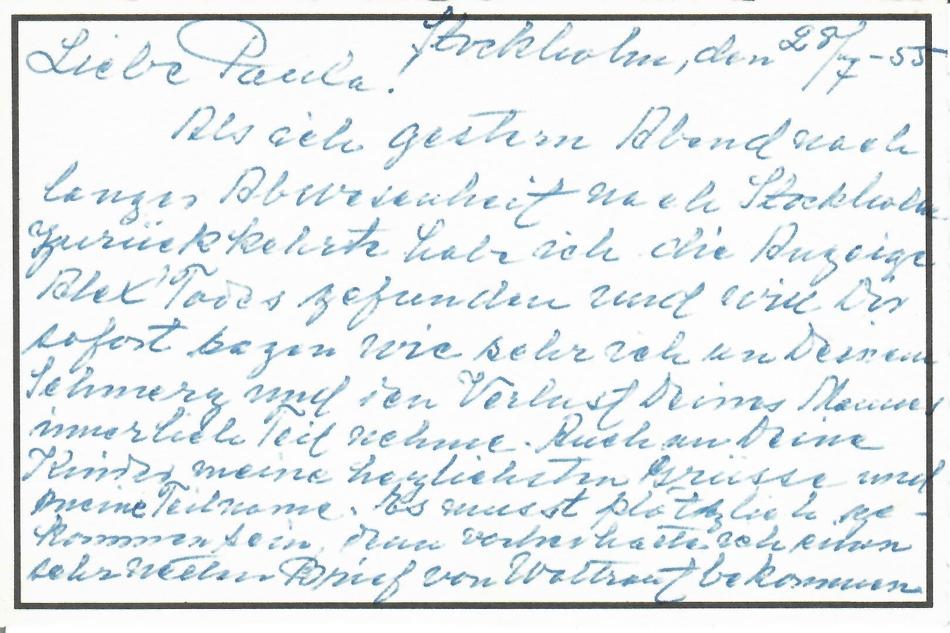 Stockholm, den 28/7-55
Liebe Paula!
Als ich gestern Abend nach
langer Abwesenheit nach Stockholm
zurückkehrte habe ich die Anzeige
Alex' Todes gefunden und will Dir
sofort sagen wie sehr ich an Deinem
Schmerz und den Verlust Deines Mannes
innerlich Teil nehme. Auch an Deine
Kinder meine herzlichsten Grüsse und
meine Teilname. Es musst plötzlich ge-
kommen sein, denn vorher hatte ich einen
sehr netten Brief von Waltraut bekommen.